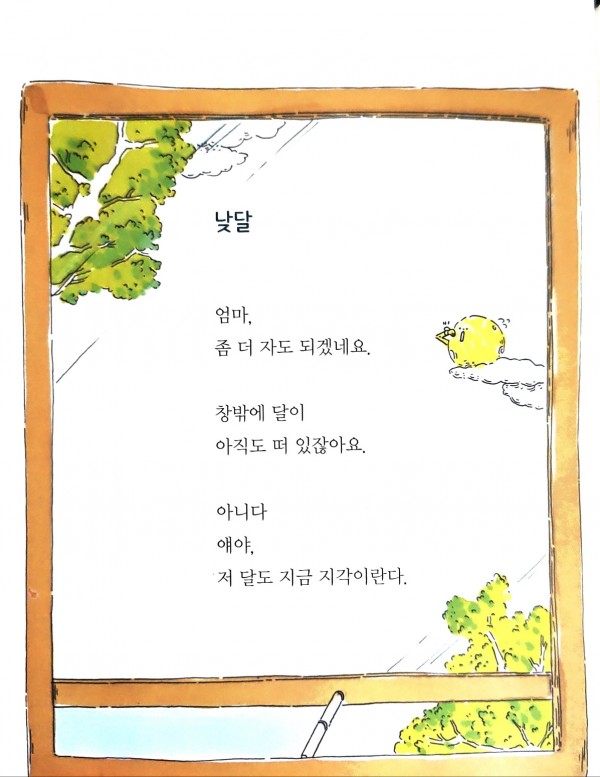 낮달
엄마,
좀 더 자도 되겠네요.
창밖에 달이
아직도 떠 있잖아요.
아니다
얘야,
저 달도 지금 지각이란다.